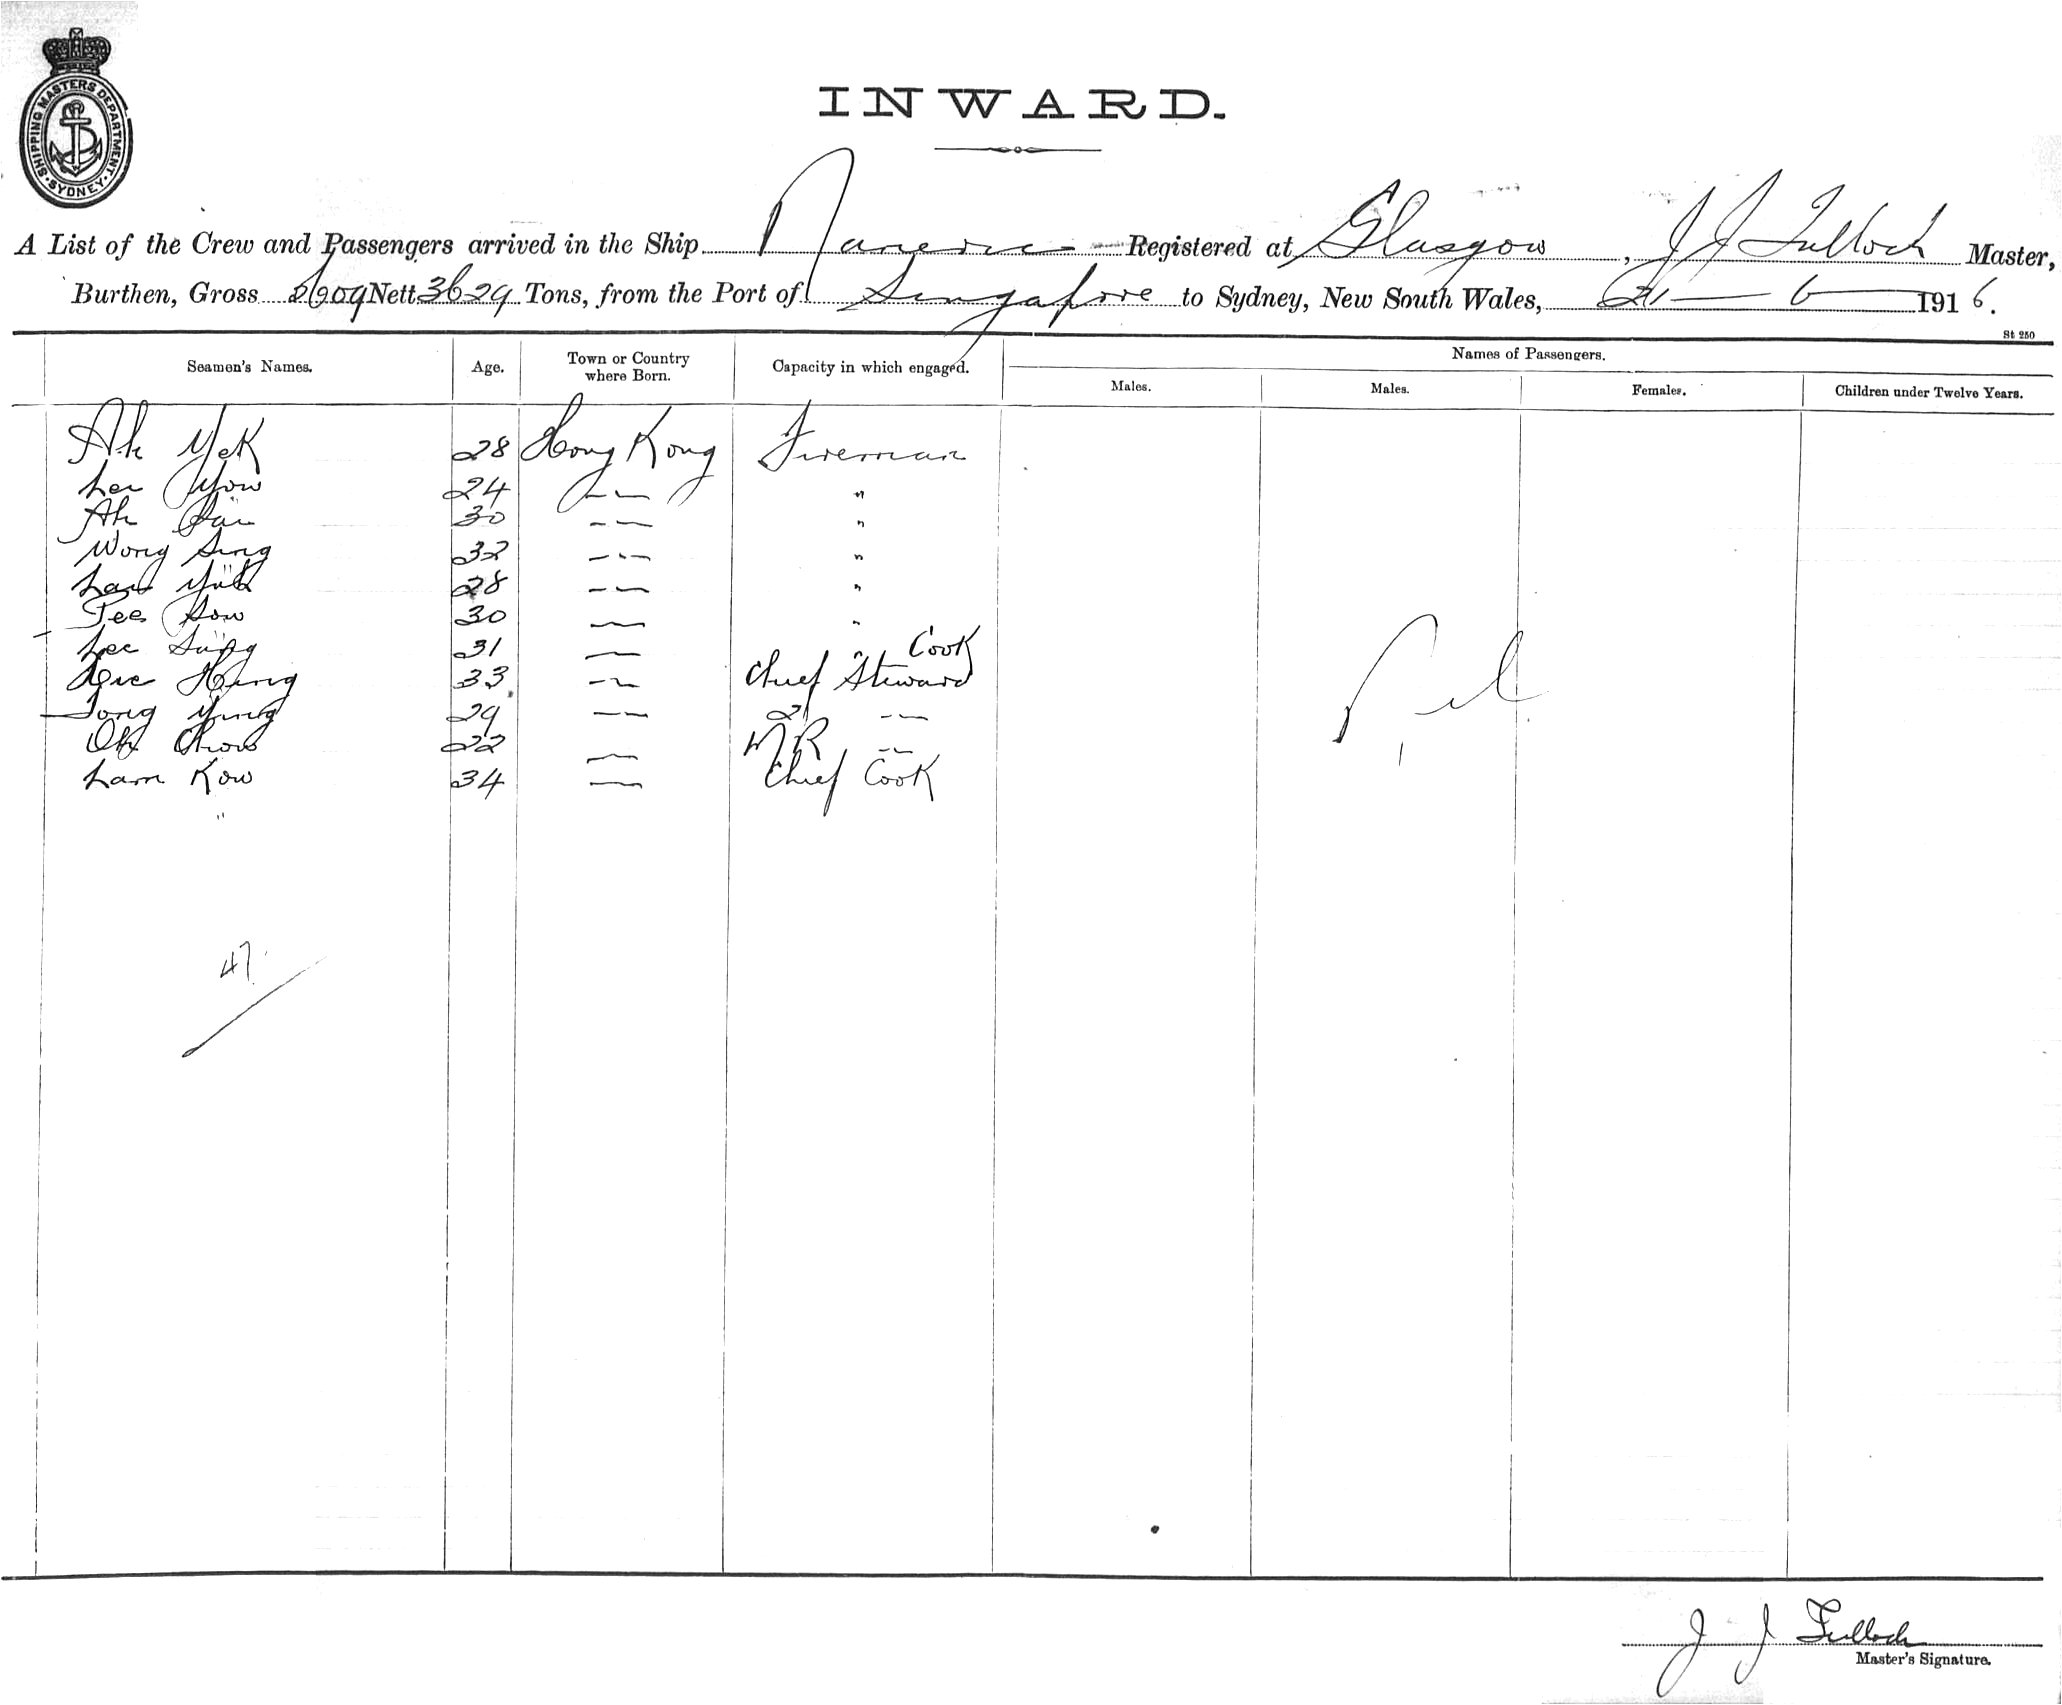 SHIPPING MASTERS DEPARTMENT · SYDNEY ·
INWARD.
A List of the Crew and Passengers arrived in the Ship Registered at Glasgow, J J Tulloch Master,
Burthen, Gross Nett 3629 Tons, from the Port of Singapore to Sydney, New South Wales, 6 1916.
St 250
Seamen's Names. Age. Town or Country where Born. Capacity in which engaged. Names of Passengers.
Males. Males. Females. Children under Twelve Years.
Ah Yek 28 Hong Kong Fireman
Lee Yow 24 — — "
Ah 30 — — "
Wong Sing 32 — — "
28 — — "
Tee Sow 30 — "
Lee 31 — " Cook
Hing 33 — — Chief Steward
Tong Yung 29 — — 2 — —
Chow 22 — M R — —
Lam Kow 34 — Chief Cook
Nil
47
J J Tulloch
Master's Signature.